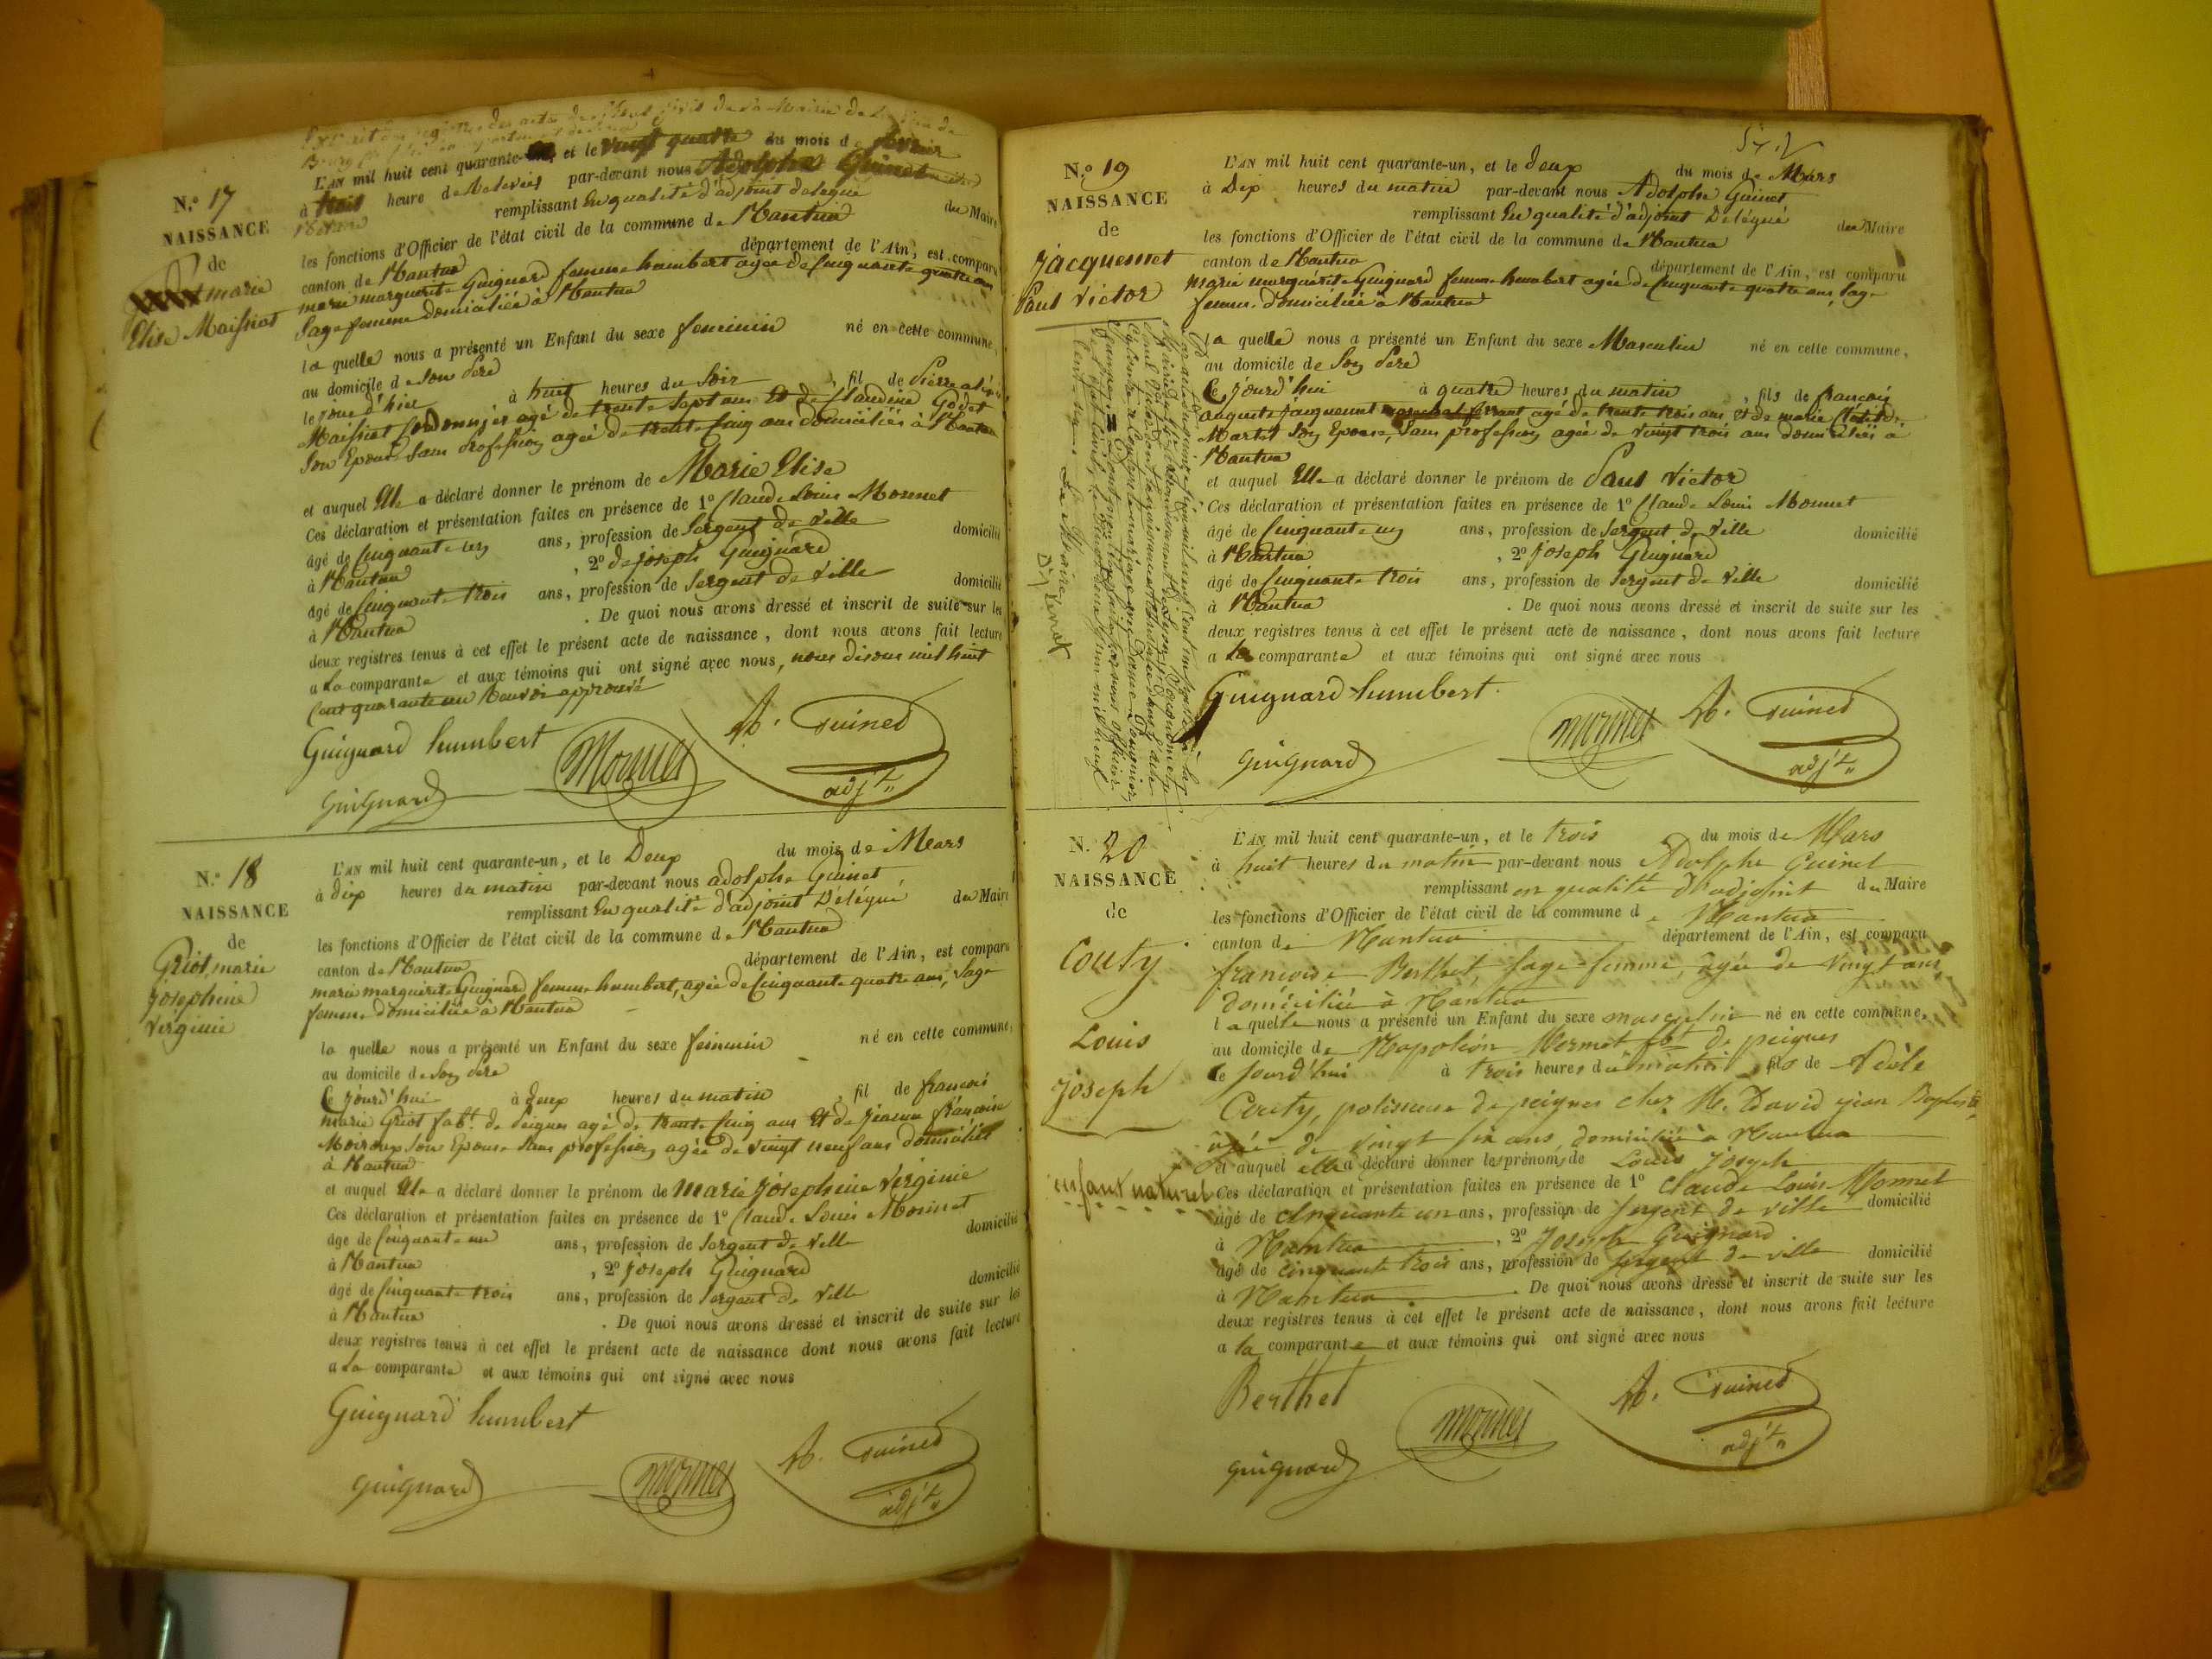 N.° 17
NAISSANCE
de
marie
Elise Maissiat
L'AN mil huit cent quarante- et le vingt quatre du mois de fevrier
à trois heure de relevées par-devant nous Adolphe Guinet
remplissant En qualité d'adjoint delegué du Maire
les fonctions d'Officier de l'état civil de la commune de Nantua
canton de Nantua département de l'Ain, est comparu
marie marguerite Guignard femme humbert agée de Cinquante quatre ans
Sage femme domiciliée à Nantua
la quelle nous a présenté un Enfant du sexe feminin né en cette commune,
au domicile de son Père
le jour d'hier à huit heures du Soir , fil de Pierre
Maissiat Cordonnier agé de trente Sept ans Et de Claudine Godet
Son Epouse Sans profession agée de trente Cinq ans domiciliés à Nantua
et auquel Elle a déclaré donner le prénom de Marie Elise
Ces déclaration et présentation faites en présence de 1° Claude Louis Monnet
âgé de Cinquante un ans, profession de Sergent de Ville domicilié
à Nantua , 2° de joseph Guignard
âgé de Cinquante trois ans, profession de Sergent de Ville domicilié
à Nantua . De quoi nous avons dressé et inscrit de suite sur les
deux registres tenus à cet effet le présent acte de naissance, dont nous avons fait lecture
a la comparante et aux témoins qui ont signé avec nous, nous disons mil huit
Cent quarante un Renvoi approuvé
Guignard humbert
Guignard Monnet A. Guinet
adj.t
N.° 18
NAISSANCE
de
Griot, marie
josephine
Virginie
L'AN mil huit cent quarante-un, et le Deux du mois de Mars
à dix heures du matin par-devant nous adolphe Guinet
remplissant En qualité d'adjoint Délégué du Maire
les fonctions d'Officier de l'état civil de la commune de Nantua
canton de Nantua département de l'Ain, est comparu
marie marguerite Guignard femme humbert, agée de Cinquante quatre ans, Sage
femme domiciliée à Nantua
la quelle nous a présenté un Enfant du sexe feminin né en cette commune,
au domicile de Son Père
Ce jourd'hui à deux heures du matin , fil de françois
marie Griot fab.t de Peignes agé de trente Cinq ans Et de jeanne françoise
Moiroux Son Epouse Sans profession, agée de vingt neuf ans domiciliés
à Nantua
et auquel Elle a déclaré donner le prénom de Marie josephine Virginie
Ces déclaration et présentation faites en présence de 1° Claude Louis Monnet
âgé de Cinquante un ans, profession de Sergent de Ville domicilié
à Nantua , 2° joseph Guignard
âgé de Cinquante trois ans, profession de Sergent de Ville domicilié
à Nantua . De quoi nous avons dressé et inscrit de suite sur les
deux registres tenus à cet effet le présent acte de naissance dont nous avons fait lecture
a la comparante et aux témoins qui ont signé avec nous
Guignard humbert
Guignard Monnet A. Guinet
adj.t
N.° 19
NAISSANCE
de
jacquemet
Paul Victor
L'AN mil huit cent quarante-un, et le deux du mois de Mars
à Dix heures du matin par-devant nous Adolphe Guinet
remplissant En qualité d'adjoint Délégué du Maire
les fonctions d'Officier de l'état civil de la commune de Nantua
canton de Nantua département de l'Ain, est comparu
Marie marguerite Guignard femme humbert agée de Cinquante quatre ans, Sage
femme. domiciliée à Nantua
la quelle nous a présenté un Enfant du sexe Masculin né en cette commune,
au domicile de Son Père
Ce jourd'hui à quatre heures du matin , fils de françois
auguste jacquemet marechal ferrant agé de trente trois ans et de marie
Martet Son Epouse, Sans profession agée de vingt trois ans domiciliés à
Nantua
et auquel Elle a déclaré donner le prénom de Paul Victor
Ces déclaration et présentation faites en présence de 1° Claude Louis Monnet
âgé de Cinquante un ans, profession de Sergent de Ville domicilié
à Nantua , 2° joseph Guignard
âgé de Cinquante trois ans, profession de Sergent de Ville domicilié
à Nantua . De quoi nous avons dressé et inscrit de suite sur les
deux registres tenus à cet effet le présent acte de naissance, dont nous avons fait lecture
a la comparante et aux témoins qui ont signé avec nous
Guignard humbert.
Guignard Monnet A. Guinet
adj.t
N. 20
NAISSANCE
de
Couty
Louis
joseph
enfant naturel
L'AN mil huit cent quarante-un, et le trois du mois de Mars
à huit heures du matin par-devant nous Adolphe Guinet
remplissant en qualité d'adjoint du Maire
les fonctions d'Officier de l'état civil de la commune de Nantua
canton de Nantua département de l'Ain, est comparu
francoise Berthet, sage-femme, agée de vingt ans
domiciliée à Nantua
laquelle nous a présenté un Enfant du sexe masculin né en cette commune,
au domicile de Napoléon Mermet fbt de peignes
le jourd'hui à trois heures du matin fils de Adèle
Couty, polisseuse de peignes chez M. David jean Baptiste
agée de vingt six ans, domiciliée à Nantua
et auquel elle a déclaré donner les prénoms de Louis joseph
Ces déclaration et présentation faites en présence de 1° Claude Louis Monnet
âgé de cinquante un ans, profession de sergent de ville domicilié
à Nantua , 2° Joseph Guignard
âgé de cinquante trois ans, profession de sergent de ville domicilié
à Nantua . De quoi nous avons dressé et inscrit de suite sur les
deux registres tenus à cet effet le présent acte de naissance, dont nous avons fait lecture
a la comparante et aux témoins qui ont signé avec nous
Berthet
Guignard Monnet A. Guinet
adj.t